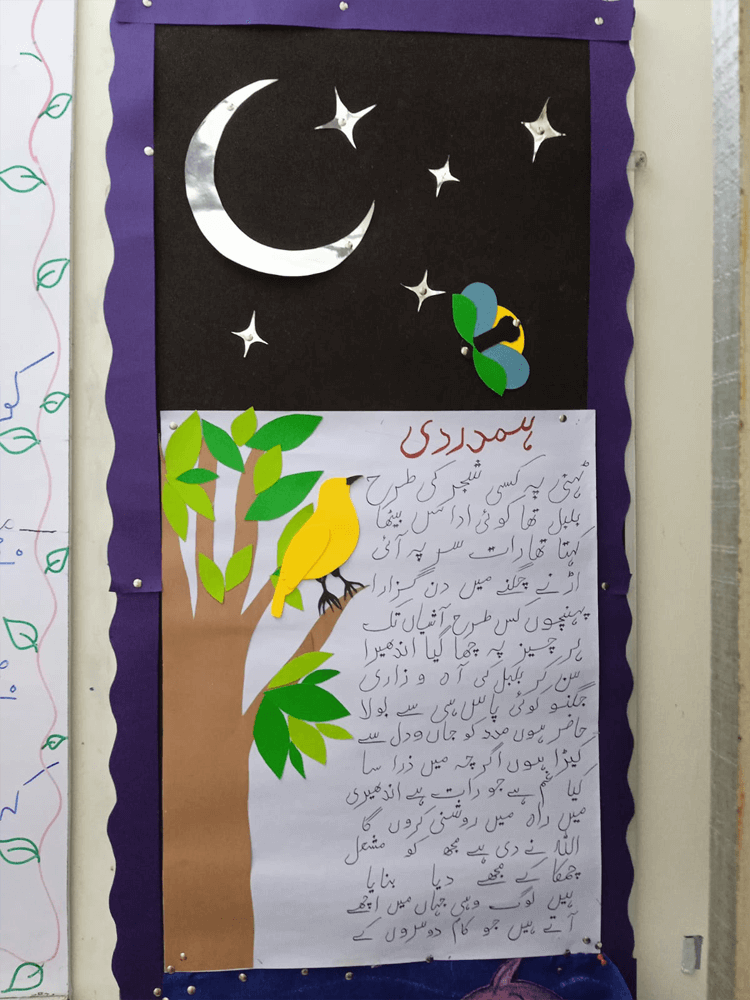 ہمدردی
ٹہنی پہ کسی شجر کی طرح
بلبل تھا کوئی اداس بیٹھا
کہتا تھا رات سر پہ آئی
اڑنے چگنے میں دن گزارا
پہنچوں کس طرح آشیاں تک
ہر چیز پہ چھا گیا اندھیرا
سن کر بلبل کی آہ و زاری
جگنو کوئی پاس ہی سے بولا
حاضر ہوں مدد کو جان و دل سے
کیڑا ہوں اگرچہ میں ذرا سا
کیا غم ہے جو رات ہے اندھیری
میں راہ میں روشنی کروں گا
اللہ نے دی ہے مجھ کو مشعل
چمکا کے مجھے دیا بنایا
ہیں لوگ وہی جہاں میں اچھے
آتے ہیں جو کام دوسروں کے